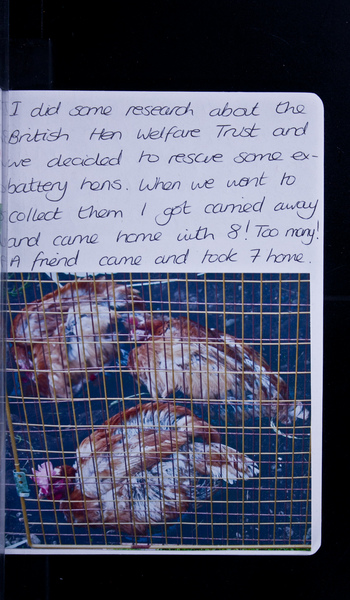 I did some research about the
British Hen Welfare Trust and
we decided to rescue some ex-
battery hens. When we went to
collect them I got carried away
and came home with 8! Too many!
A friend came and took 7 home.